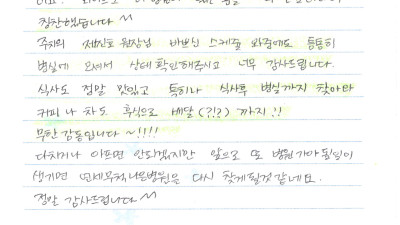 칭찬했습니다~
주치의 원장님 바쁘신 스케줄 와중에도 틈틈히
병실에 오셔서 상태확인해주시고 너무 감사드립니다.
식사도 정말 맛있고 특히나 식사를 병실까지
커피나 차도 후식으로 배달(?!?) 까지!!
무한 감동입니다~!!!!
다치거나 아프면 안되겠지만 앞으로 또 병원가야 될일이
생기면 병원은 다시 찾게될것 같네요.
정말 감사드립니다~